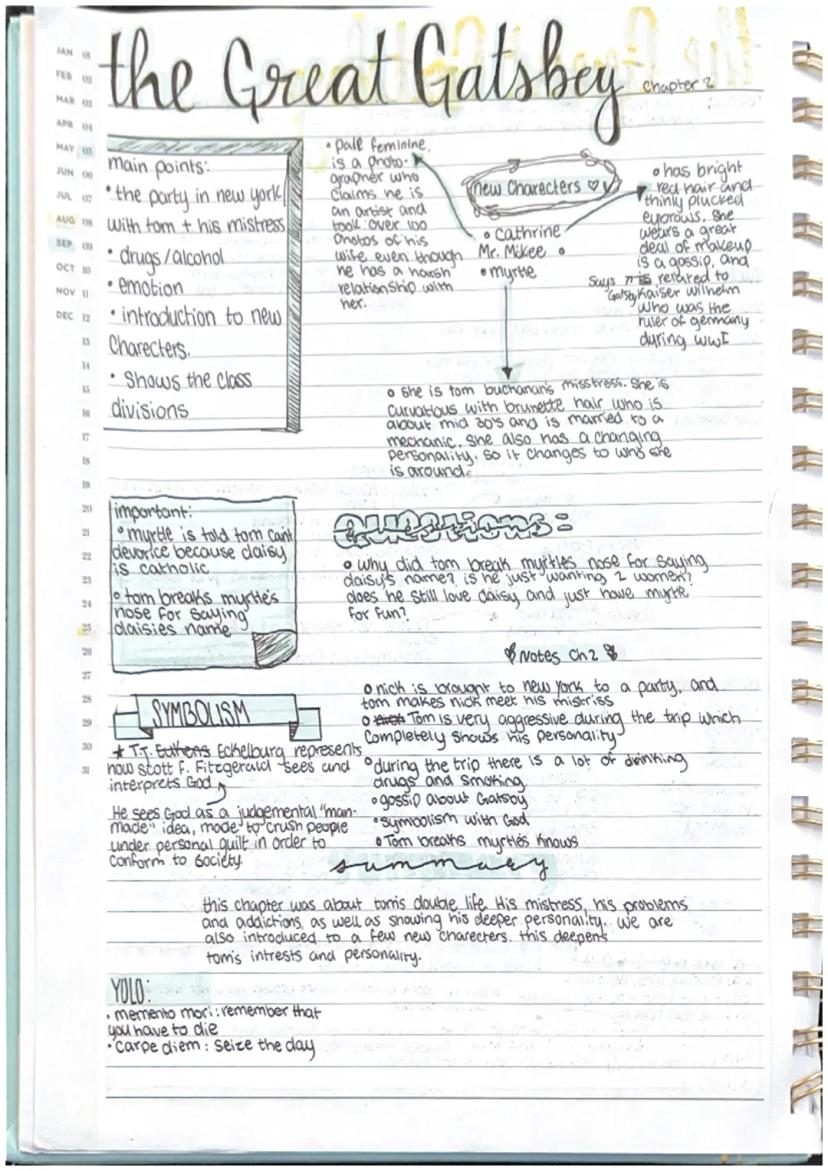 the Great Gatsbey chapter 2
JAN 01
FEB 02
MAR 03
APR 04
MAY 05
JUN 06
JUL 07
AUG 08
SEP 09
OCT 10
NOV 11
DEC 12
13
14
15
16
17
18
19
20
21
22
23
24
25
26
27
28
29
30
31
main points:
• the party in new york
with tom + his mistress
• drugs/alcohol
• emotion
• introduction to new
Charecters.
• Shows the class
divisions
• Pale feminine,
is a photo-
grapher who
claims he is
an artist and
took over 100
photos of his
wife even though
he has a harsh
relationship with
her.
new Charecters
• cathrine
Mr. Mckee •
• myrtle
• has bright
red hair and
thinly plucked
eyebrows. She
wears a great
deal of makeup
is a gossip, and
Says is related to
Gatsby Kaiser Wilhelm
who was the
ruler of germany
during WWI
• she is tom buchanan's misstress. She is
curvatious with brunette hair who is
about mid 30's and is married to a
mechanic. She also has a changing
personality. so it changes to who she
is around.
important:
• myrtle is told tom cant
devorce because daisy
is catholic
• tom breaks myrtle's
nose for saying
daisies name
Questions:
• why did tom break myrtles nose for saying
daisy's name? is he just wanting 2 women?
does he still love daisy and just have myrtle
for fun?
Notes Ch 2
• nick is brought to new york to a party, and
tom makes nick meet his mistriss
• Tom is very aggressive during the trip which
completely shows his personality
• during the trip there is a lot of drinking
drugs and smoking
• gossip about Gatsby
• symbolism with God
• Tom breaks myrtles knows
SYMBOLISM
★ T.J. Eckelburg represents
how scott F. Fitzgerald sees and
interprets God
He sees God as a judgemental "man-
made" idea, made to crush people
under personal guilt in order to
conform to Society.
summary
this chapter was about tom's double life. His mistress, his problems
and addictions, as well as showing his deeper personality. we are
also introduced to a few new charecters. this deepens
tom's intrests and personality.
YOLO:
• memento mori: remember that
you have to die
• carpe diem: seize the day